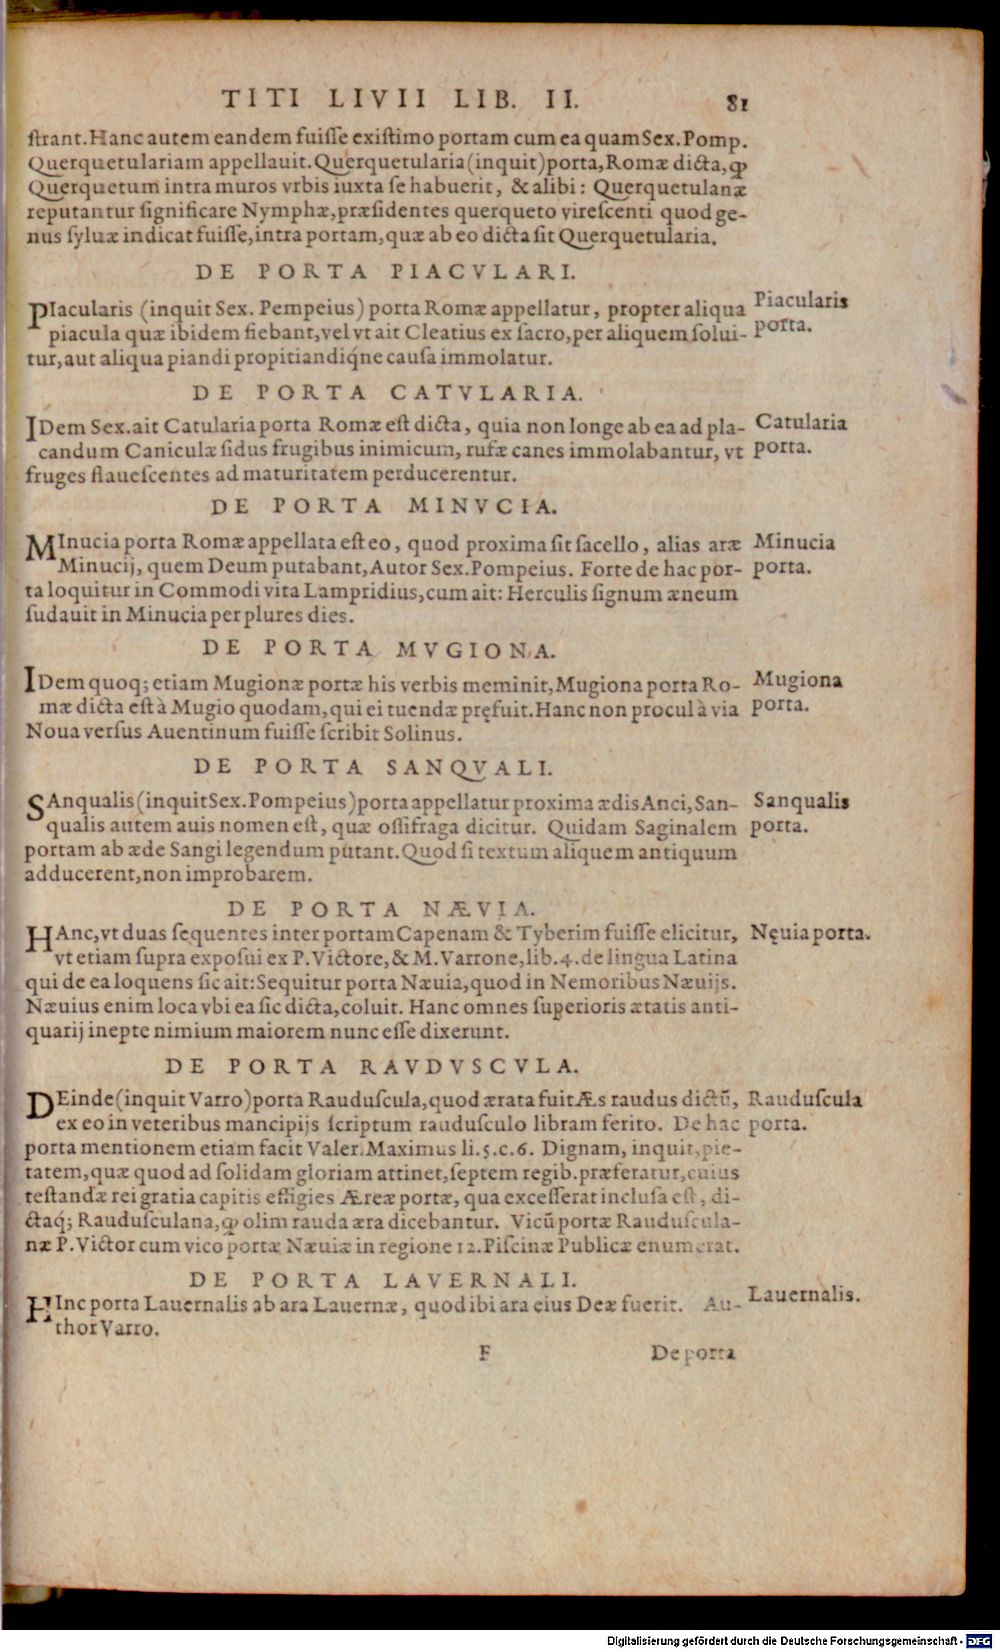 TITI LIVII LIB. II. 81
ſtrant. Hanc autem eandem fuiſſe exiſtimo portam cum ea quam Sex. Pomp.
Querquetulariam appellauit. Querquetularia (inquit) porta, Romæ dicta, ꝙ
Querquetum intra muros vrbis iuxta ſe habuerit, & alibi: Querquetulanæ
reputantur ſignificare Nymphæ, præſidentes querqueto vireſcenti quod ge-
nus ſyluæ indicat fuiſſe, intra portam, quæ ab eo dicta ſit Querquetularia.
DE PORTA PIACVLARI.
PIacularis (inquit Sex. Pempeius) porta Romæ appellatur, propter aliqua
piacula quæ ibidem fiebant, vel vt ait Cleatius ex ſacro, per aliquem ſolui-
tur, aut aliqua piandi propitiandiq́ne cauſa immolatur.
Piacularis
porta.
DE PORTA CATVLARIA.
IDem Sex. ait Catularia porta Romæ eſt dicta, quia non longe ab ea ad pla-
candum Caniculæ ſidus frugibus inimicum, rufæ canes immolabantur, vt
fruges flaueſcentes ad maturitatem perducerentur.
Catularia
porta.
DE PORTA MINVCIA.
MInucia porta Romæ appellata eſt eo, quod proxima ſit ſacello, alias aræ
Minucij, quem Deum putabant, Autor Sex. Pompeius. Forte de hac por-
ta loquitur in Commodi vita Lampridius, cum ait: Herculis ſignum æneum
ſudauit in Minucia per plures dies.
Minucia
porta.
DE PORTA MVGIONA.
IDem quoq; etiam Mugionæ portæ his verbis meminit, Mugiona porta Ro-
mæ dicta eſt à Mugio quodam, qui ei tuendæ pręfuit. Hanc non procul à via
Noua verſus Auentinum fuiſſe ſcribit Solinus.
Mugiona
porta.
DE PORTA SANQVALI.
SAnqualis (inquit Sex. Pompeius) porta appellatur proxima ædis Anci, San-
qualis autem auis nomen eſt, quæ oſſifraga dicitur. Quidam Saginalem
portam ab æde Sangi legendum putant. Quod ſi textum aliquem antiquum
adducerent, non improbarem.
Sanqualis
porta.
DE PORTA NÆVIA.
HAnc, vt duas ſequentes inter portam Capenam & Tyberim fuiſſe elicitur,
vt etiam ſupra expoſui ex P. Victore, & M. Varrone, lib. 4. de lingua Latina
qui de ea loquens ſic ait: Sequitur porta Næuia, quod in Nemoribus Næuijs.
Næuius enim loca vbi ea ſic dicta, coluit. Hanc omnes ſuperioris ætatis anti-
quarij inepte nimium maiorem nunc eſſe dixerunt.
Nęuia porta.
DE PORTA RAVDVSCVLA.
DEinde (inquit Varro) porta Rauduſcula, quod ærata fuit Æs raudus dictũ,
ex eo in veteribus mancipijs ſcriptum rauduſculo libram ferito. De hac
porta mentionem etiam facit Valer. Maximus li. 5. c. 6. Dignam, inquit, pie-
tatem, quæ quod ad ſolidam gloriam attinet, ſeptem regib. præferatur, cuius
teſtandæ rei gratia capitis effigies Æreæ portæ, qua exceſſerat incluſa eſt, di-
ctaq́; Rauduſculana, ꝙ olim rauda æra dicebantur. Vicũ portæ Rauduſcula-
næ P. Victor cum vico portæ Næuiæ in regione 12. Piſcinæ Publicæ enumerat.
Rauduſcula
porta.
DE PORTA LAVERNALI.
HInc porta Lauernalis ab ara Lauernæ, quod ibi ara eius Deæ fuerit. Au-
thor Varro.
Lauernalis.
F De porta
Digitalisierung gefördert durch die Deutsche Forschungsgemeinschaft - DFG